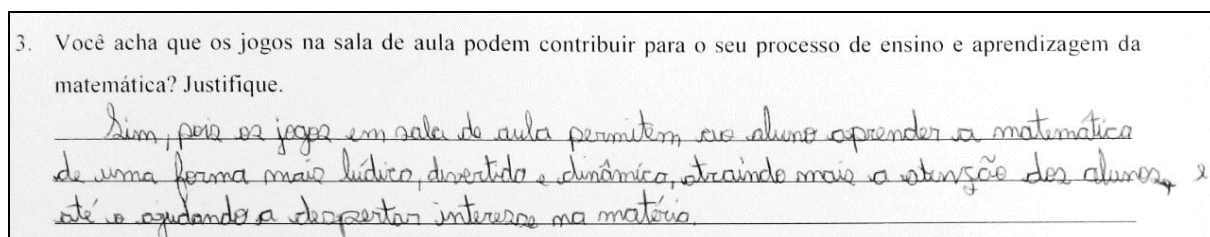 3. Você acha que os jogos na sala de aula podem contribuir para o seu processo de ensino e aprendizagem da
matemática? Justifique.
Sim, pois os jogos em sala de aula permitem ao aluno aprender a matemática
de uma forma mais lúdico, divertido e dinâmico, atraindo mais a atenção dos alunos, e
até o ajudando a despertar interesse na matéria.